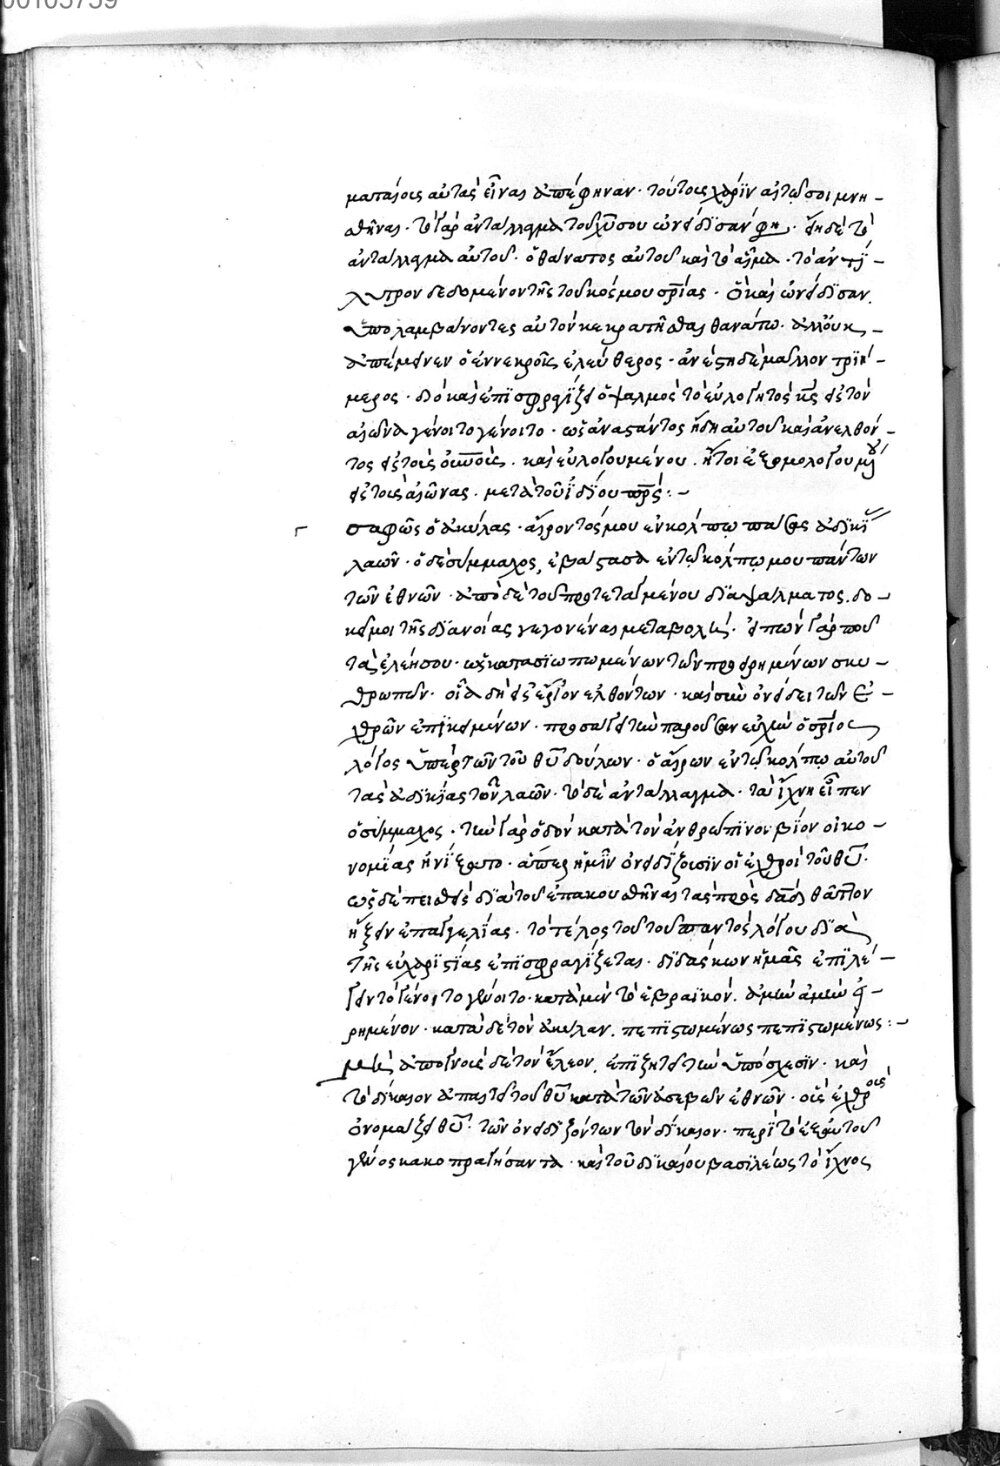 00103759
ματαίοις αὐτὰς εἶναι ἀπέφηναν · τούτοις χάριν αἰτῶ σοι μνη -
σθῆναι · τὸ γὰρ ἀντάλλαγμα τοῦ χυ σου ὠνείδισάν φη ·
ἀντάλλαγμα αὐτοῦ · ὁ θάνατος αὐτοῦ καὶ τὸ αἷμα · τὸ ἀντί -
λυτρον δεδομένον τῆς τοῦ κόσμου σρίας · ὃ καὶ ὠνείδισαν
ὑπολαμβάνοντες αὐτὸν κεκρατῆσθαι θανάτω · ἀλλ' οὐκ -
ἀπέμεινεν ὁ ἐν νεκροῖς ἐλεύθερος · ἀνέστη δὲ μᾶλλον τριή -
μερος · διὸ καὶ ἐπισφραγίζει ὁ ψαλμὸς τὸ εὐλογητὸς κς εἰς τὸν
αἰῶνα γένοιτο γένοιτο · ὡς ἀναστάντος ἤδη αὐτοῦ καὶ ἀνελθόν -
τος εἰς τοὺς οὐνοὺς · καὶ εὐλογουμένου · ἤτοι ἐξομολογουμένου
εἰς τοὺς αἰῶνας · μετὰ τοῦ ἰδίου πρς : -
σαφῶς ὁ ἀκύλας · αἴροντός μου ἐν κόλπω πάσας ἀδικίας
λαῶν · ὁ δὲ σύμμαχος, ἐβάστασα ἐν τῶ κόλπω μου πάντων
τῶν ἐθνῶν · ἀπὸ δὲ τοῦ προτεταγμένου διαψάλματος δο -
κεῖ μοι τῆς διανοίας γεγονέναι μεταβολὴ · εἰπὼν γὰρ ποῦ
τὰ ἐλέη σου · ὡς κατασιωπωμένων τῶν προειρημένων σκυ -
θρωπῶν · οἷα δὴ εἰς ἔργον ἐλθόντων · καὶ σὺν ὀνείδει τῶν ἐ -
χθρῶν ἐπικειμένων · προσάγει τὴν παροῦσαν εὐχὴν ὁ σριος
λόγος ὑπὲρ τῶν τοῦ θυ δούλων · ὁ αἴρων ἐν τῶ κόλπω αὐτοῦ
τὰς ἀδικίας τῶν λαῶν · τὸ δὲ ἀντάλλαγμα · τὰ ἴχνη εἶπεν
ὁ σύμμαχος · τὴν γὰρ ὁδὸν κατὰ τὸν ἀνθρώπινον βίον οἰκο -
νομίας ἠνίξατο · ἅπερ ἡμῖν ὀνειδίζουσιν οἱ ἐχθροὶ τοῦ θυ ·
ὡς δὲ πεισθεὶς διὰ τοῦ ἐπακουσθῆναι τὰς πρὸς δαδ θᾶττον
ἥξειν ἐπαγγελίας · τὸ τέλος τοῦ τοῦ παντὸς λόγου διὰ
τῆς εὐχαριστίας ἐπισφραγίζεται · διδάσκων ἡμᾶς ἐπιλέ -
γειν τὸ γένοιτο γένοιτο · κατὰ μὲν τὸ ἑβραϊκόν · ἀμὴν ἀμὴν εἰ -
ρημένον · κατὰ δὲ τὸν ἀκύλαν · πεπιστωμένως πεπιστωμένως : -
ἀπογνοὺς δὲ τὸν ἔλεον, ἐπιζητεῖ τὴν ὑπόσχεσιν · καὶ
τὸ δίκαιον ἀπαιτεῖ τοῦ θυ κατὰ τῶν ἀσεβῶν ἐθνῶν · οὓς ἐχθροὺς
ὀνομάζει θυ · τῶν ὀνειδιζόντων τὸν δίκαιον · περὶ τὸ ἐξ αὐτοῦ
γένος κακοπραγήσαντα · καὶ τοῦ δικαίου βασιλέως τὸ ἴχνος